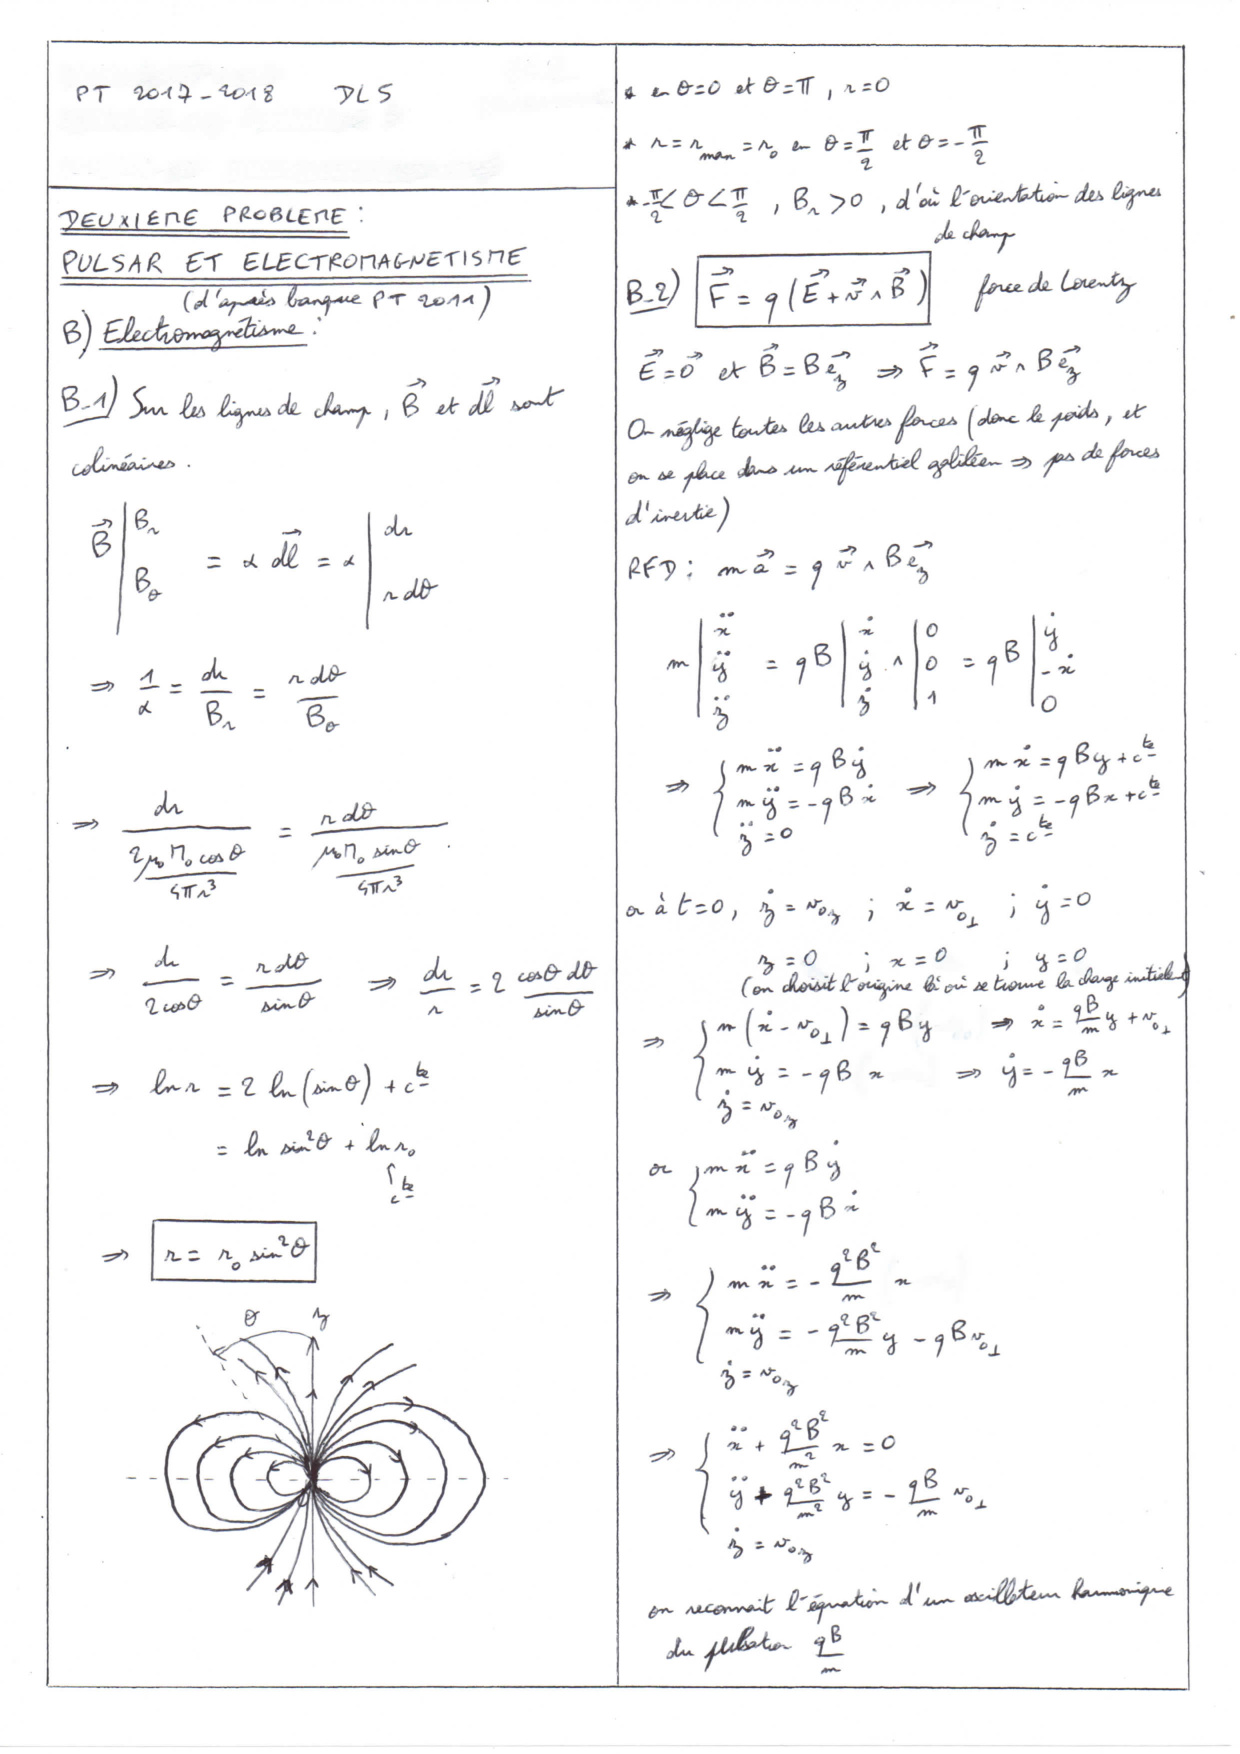 PT 2017-2018 DL5
DEUXIEME PROBLEME :
PULSAR ET ELECTROMAGNETISME
(d'après banque PT 2011)
B) Electromagnétisme :
B-1) Sur les lignes de champ, B⃗ et dl⃗ sont
colinéaires.
B⃗ | B_r ; B_θ = α dl⃗ = α | dr ; r dθ
⇒ 1/α = dr/B_r = r dθ/B_θ
⇒ dr/(2μ₀M₀ cosθ/4πr³) = r dθ/(μ₀M₀ sinθ/4πr³)
⇒ dr/(2cosθ) = r dθ/sinθ ⇒ dr/r = 2 cosθ dθ/sinθ
⇒ ln r = 2 ln(sinθ) + c^te
= ln sin²θ + ln r₀
↑ c^te
⇒ r = r₀ sin²θ
θ z
* en θ=0 et θ=π, r=0
* r = r_max = r₀ en θ = π/2 et θ = -π/2
* -π/2 < θ < π/2, B_r > 0, d'où l'orientation des lignes
de champ
B-2) F⃗ = q (E⃗ + v⃗ ∧ B⃗) force de Lorentz
E⃗ = 0⃗ et B⃗ = B e_z⃗ ⇒ F⃗ = q v⃗ ∧ B e_z⃗
On néglige toutes les autres forces (donc le poids, et
on se place dans un référentiel galiléen ⇒ pas de forces
d'inertie)
RFD : m a⃗ = q v⃗ ∧ B e_z⃗
m | ẍ ; ÿ ; z̈ = qB | ẋ ; ẏ ; ż ∧ | 0 ; 0 ; 1 = qB | ẏ ; -ẋ ; 0
⇒ { mẍ = qBẏ ⇒ { mẋ = qBy + c^te
mÿ = -qBẋ mẏ = -qBx + c^te
z̈ = 0 ż = c^te
or à t=0, ż = v₀z ; ẋ = v₀⊥ ; ẏ = 0
z = 0 ; x = 0 ; y = 0
(on choisit l'origine là où se trouve la charge initialent)
⇒ { m(ẋ - v₀⊥) = qBy ⇒ ẋ = qB/m y + v₀⊥
mẏ = -qB x ⇒ ẏ = - qB/m x
ż = v₀z
or { mẍ = qBẏ
mÿ = -qBẋ
⇒ { mẍ = - q²B²/m x
mÿ = - q²B²/m y - qBv₀⊥
ż = v₀z
⇒ { ẍ + q²B²/m² x = 0
ÿ + q²B²/m² y = - qB/m v₀⊥
ż = v₀z
on reconnait l'équation d'un oscillateur harmonique
du pulsation qB/m